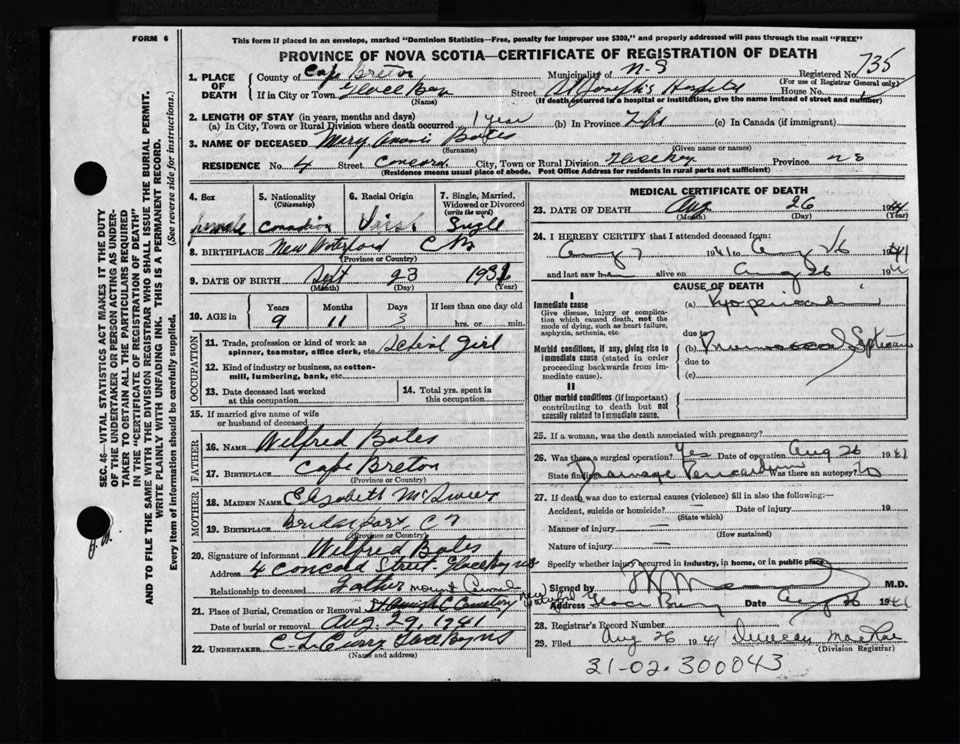 FORM 6
This form if placed in an envelope, marked "Dominion Statistics—Free, penalty for improper use $300," and properly addressed will pass through the mail "FREE"
PROVINCE OF NOVA SCOTIA—CERTIFICATE OF REGISTRATION OF DEATH
735
1. PLACE OF DEATH
County of Cape Breton Municipality of N-S Registered No.
(For use of Registrar General only)
If in City or Town Glace Bay Street St Joseph's Hospital House No.
(Name) (If death occurred in a hospital or institution, give the name instead of street and number)
2. LENGTH OF STAY (in years, months and days)
(a) In City, Town or Rural Division where death occurred 1 year (b) In Province Life (c) In Canada (if immigrant)
3. NAME OF DECEASED Mary Bates
(Surname) (Given name or names)
RESIDENCE No. 4 Street Concord City, Town or Rural Division Glace Bay Province NS
(Residence means usual place of abode. Post Office Address for residents in rural parts not sufficient)
4. Sex 5. Nationality (Citizenship) 6. Racial Origin 7. Single, Married, Widowed or Divorced (write the word)
female Canadian Irish Single
8. BIRTHPLACE New Waterford C B
(Province or Country)
9. DATE OF BIRTH Sept 23 1931
(Month) (Day) (Year)
10. AGE in Years Months Days If less than one day old
9 11 3 hrs. or min.
OCCUPATION
11. Trade, profession or kind of work as spinner, teamster, office clerk, etc. School girl
12. Kind of industry or business, as cotton-mill, lumbering, bank, etc.
13. Date deceased last worked at this occupation
14. Total yrs. spent in this occupation
15. If married give name of wife or husband of deceased
FATHER
16. Name Wilfred Bates
17. Birthplace Cape Breton
(Province or Country)
MOTHER
18. MAIDEN NAME Elizabeth
19. BIRTHPLACE Bridgeport C B
(Province or Country)
20. Signature of informant Wilfred Bates
Address 4 Concord Street Glace Bay NS
Relationship to deceased Father
21. Place of Burial, Cremation or Removal Mount Cemetery New Waterford
Date of burial or removal Aug. 29, 1941
22. UNDERTAKER Glace Bay NS
(Name and address)
MEDICAL CERTIFICATE OF DEATH
23. DATE OF DEATH Aug 26 1941
(Month) (Day) (Year)
24. I HEREBY CERTIFY that I attended deceased from:
Aug 7 1941 to Aug 26 1941
and last saw h alive on Aug 26 194
CAUSE OF DEATH
I
Immediate cause
Give disease, injury or complication which caused death, not the mode of dying, such as heart failure, asphyxia, asthenia, etc.
(a)
due to
Morbid conditions, if any, giving rise to immediate cause (stated in order proceeding backwards from immediate cause).
(b) Septicaemia
due to
(c)
II
Other morbid conditions (if important) contributing to death but not causally related to immediate cause.
25. If a woman, was the death associated with pregnancy?
26. Was there a surgical operation? Yes Date of operation Aug 26 1941
State findings Drainage Pericardium Was there an autopsy? No
27. If death was due to external causes (violence) fill in also the following:—
Accident, suicide or homicide? — Date of injury 19
(State which)
Manner of injury —
(How sustained)
Nature of injury —
Specify whether injury occurred in industry, in home, or in public place
Signed by M.D.
Address Glace Bay Date Aug 26 1941
28. Registrar's Record Number
29. Filed Aug 26 1941 Duncan MacRae
(Division Registrar)
31-02-300043
SEC. 46—VITAL STATISTICS ACT MAKES IT THE DUTY OF THE UNDERTAKER OR PERSON ACTING AS UNDERTAKER TO OBTAIN ALL THE PARTICULARS REQUIRED IN THE "CERTIFICATE OF REGISTRATION OF DEATH" AND TO FILE THE SAME WITH THE DIVISION REGISTRAR WHO SHALL ISSUE THE BURIAL PERMIT.
WRITE PLAINLY WITH UNFADING INK. THIS IS A PERMANENT RECORD.
Every item of information should be carefully supplied. (See reverse side for instructions.)